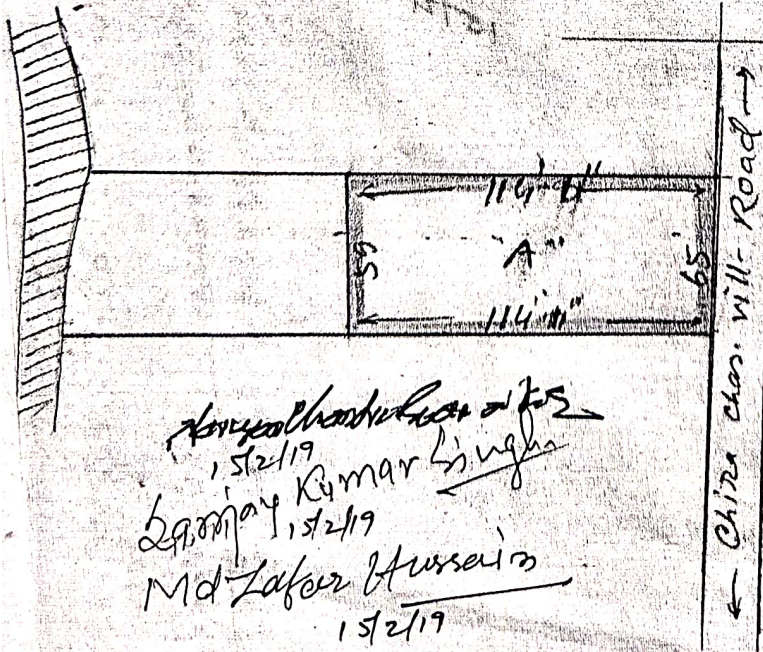 114'-11"
59
"A"
65'
114'-11"
← Chira chas. vill- Road →
15/2/19
Sanjay Kumar Singh
15/2/19
Md Zafar Hussain
15/2/19